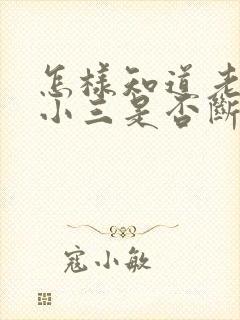 怎樣知道老
小三是否斷
寇小敏